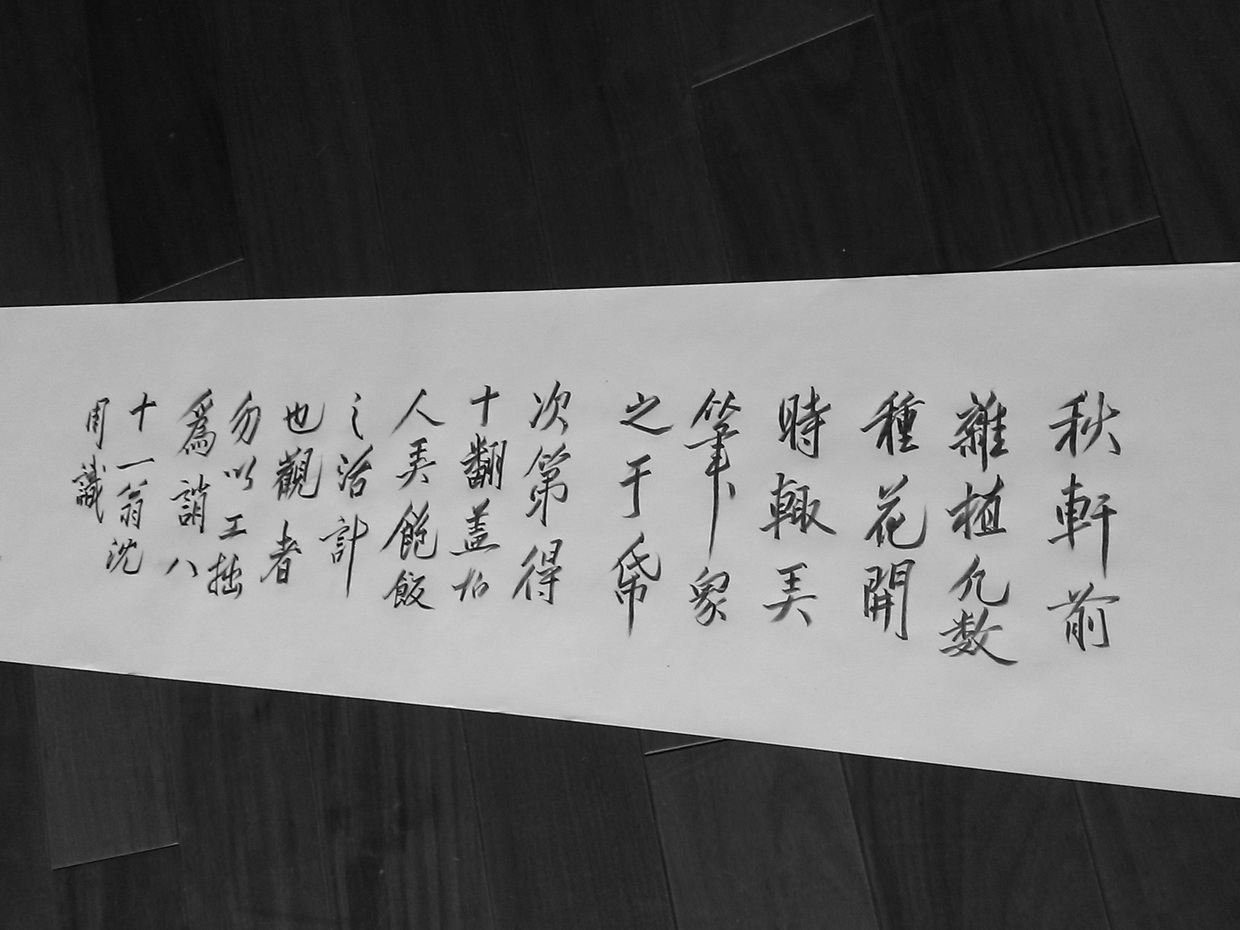 秋軒前
雜植凢數
種花開
時輙弄
筆象
之于帋
次第得
十翻盖
人弄飽飯
之活計
也觀者
勿以工拙
爲誚八
十一翁沈
周識